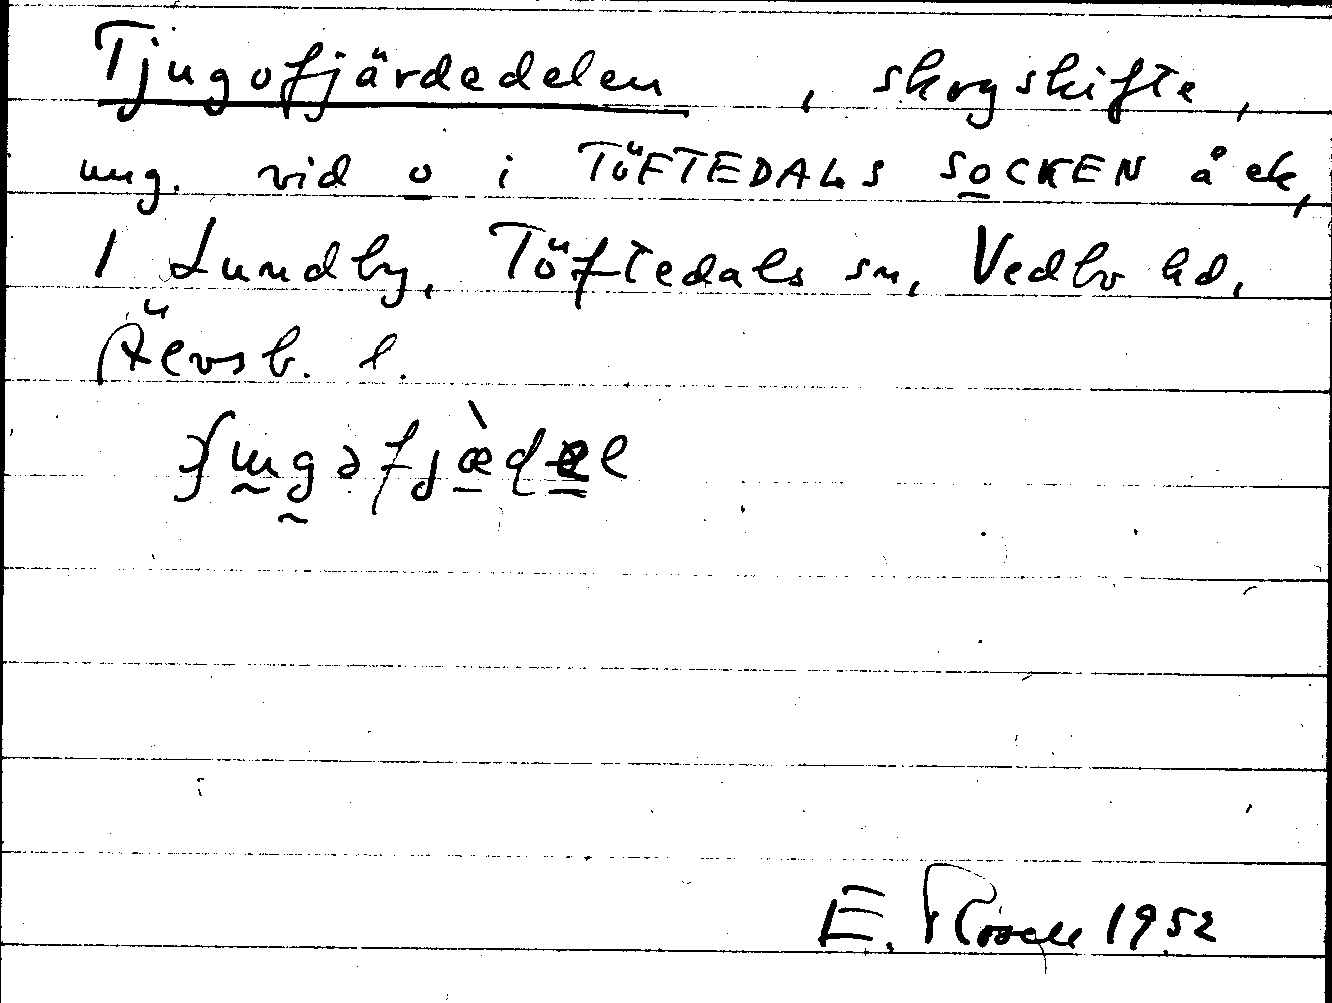 Tjugofjärdedelen , skogskifte,
ung. vid o i TÖFTEDALS SOCKEN å ek,
1 Lundby, Töftedals sn, Vedbo hd,
Älvsb. l.
E. 1952